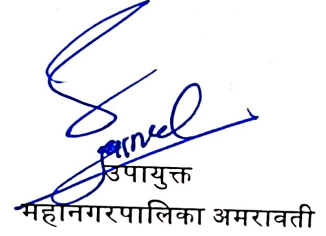 उपायुक्त
महानगरपालिका अमरावती